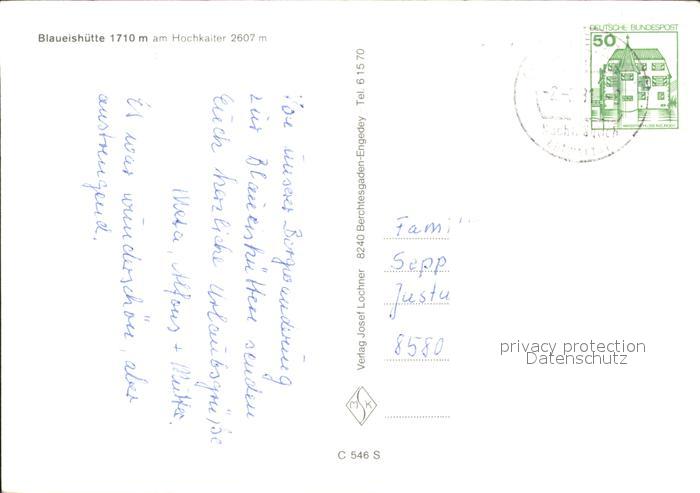 Blaueishütte 1710 m am Hochkalter 2607 m
Von unserer Bergwanderung
zur Blaueishütten senden
Euch herzliche Urlaubsgrüße
Alfons + Mutter.
Es war wunderschön, aber
anstrengend.
Verlag Josef Lochner 8240 Berchtesgaden-Engedey Tel. 6 15 70
MSK
C 546 S
DEUTSCHE BUNDESPOST
50
Fami
Sepp
Justu
8580
privacy protection
Datenschutz